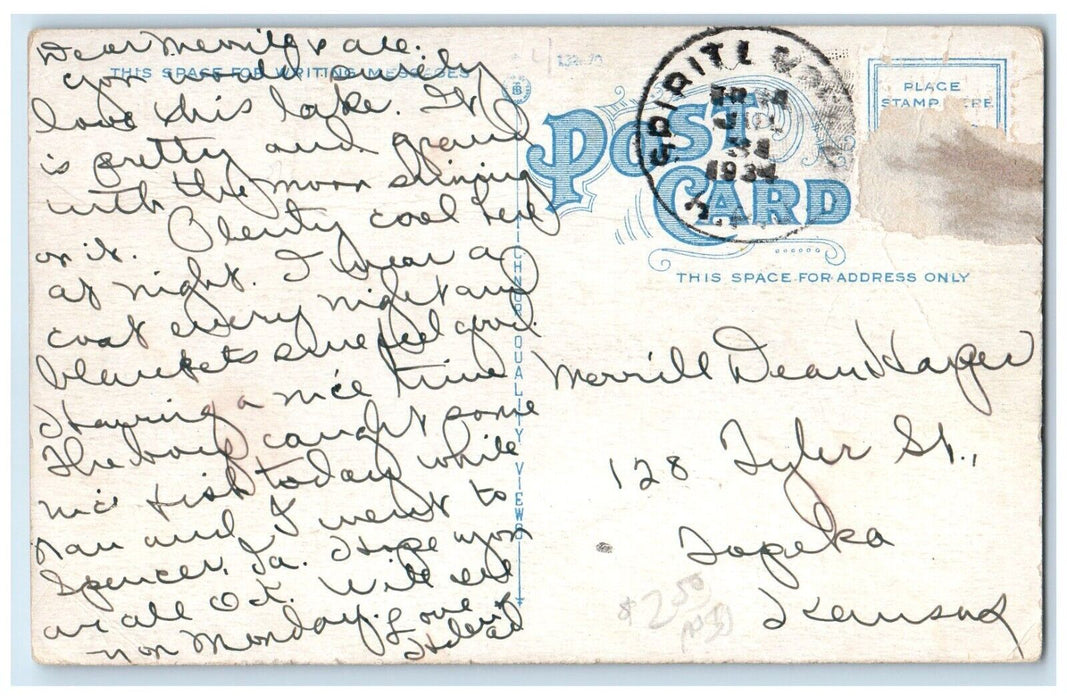 Dear Merrill & all.
THIS SPACE FOR WRITING MESSAGES
You would surely
love this lake. It
is pretty and grand
with the moon shining
on it. Plenty cool here
at night. I wear a
coat every night and
blankets sure feel good.
Having a nice time
The boys caught some
nice fish today while
Nan and I went to
Spencer, Ia. Hope you
are all O.K. Will see
you Monday.
Love
QUALITY VIEWS
POST CARD
SPIRIT L
1934
PLACE
STAMP HERE
THIS SPACE FOR ADDRESS ONLY
Merrill Dean Harper
128 Tyler St.,
Topeka
Kansas
$2.50